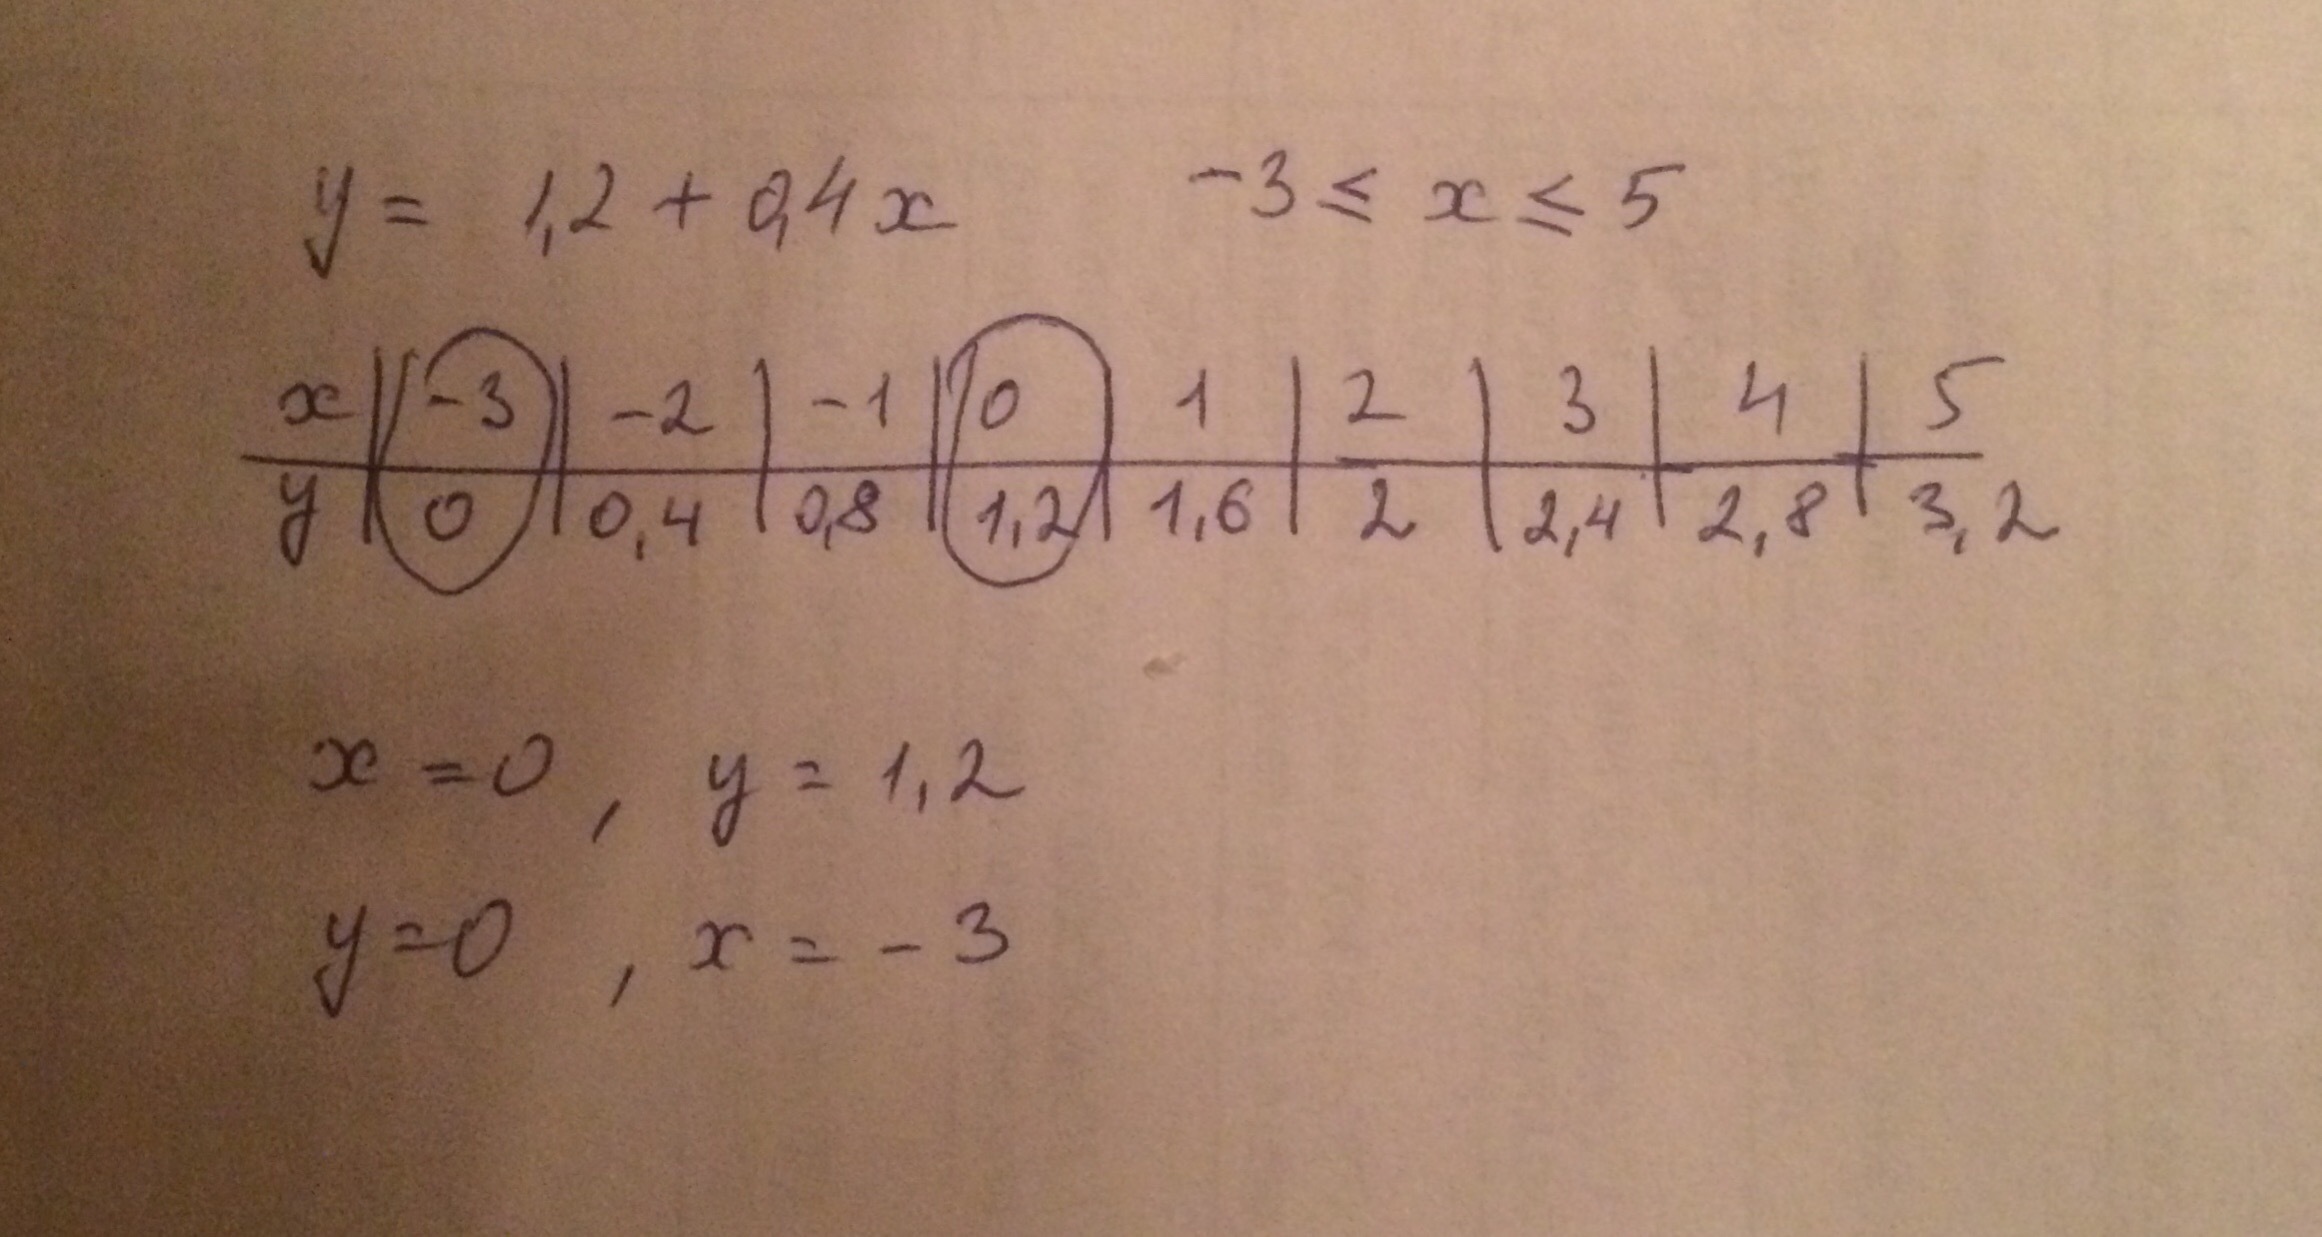 y = 1,2 + 0,4x -3 ≤ x ≤ 5
x -3 -2 -1 0 1 2 3 4 5
y 0 0,4 0,8 1,2 1,6 2 2,4 2,8 3,2
x = 0 , y = 1,2
y = 0 , x = - 3